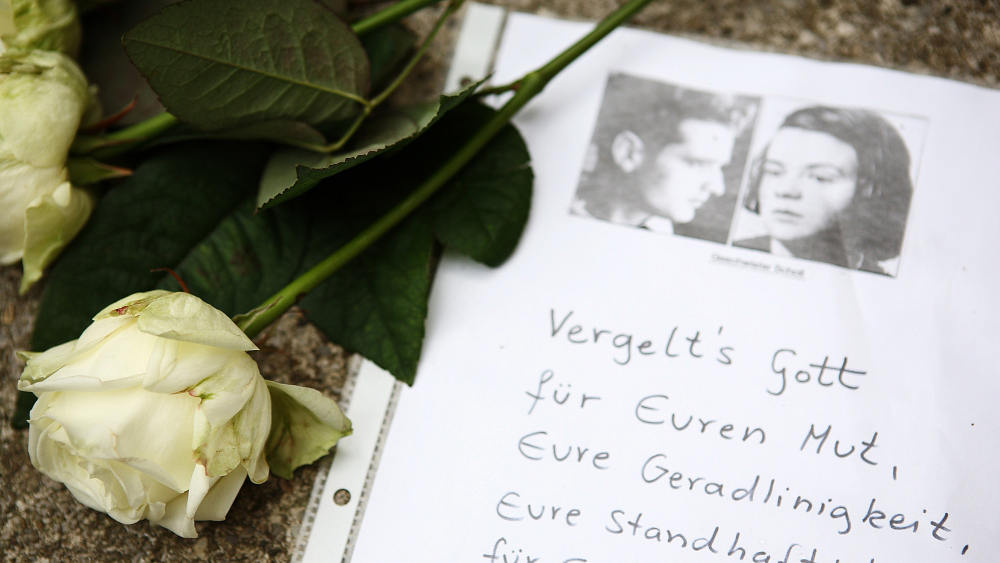 Geschwister Scholl
Vergelt's Gott
für Euren Mut,
Eure Geradlinigkeit,
Eure
für